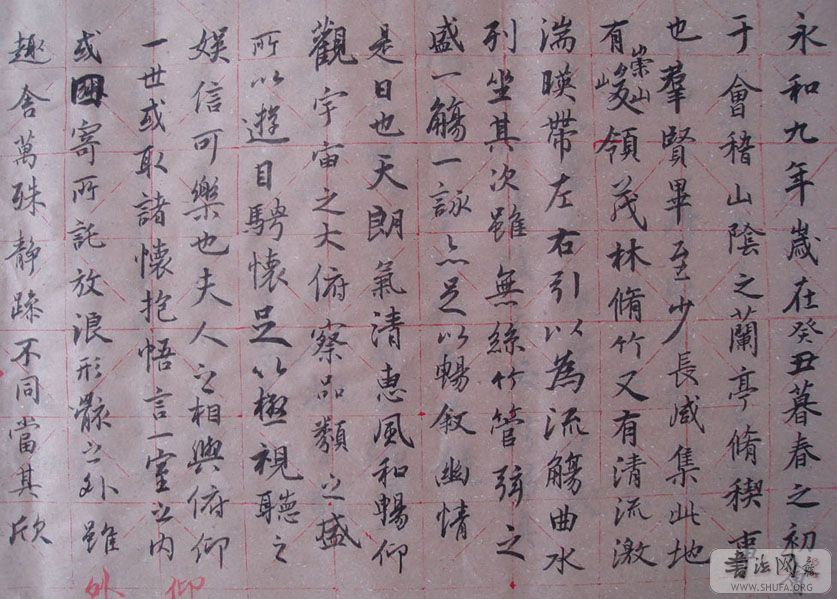 永和九年歲在癸丑暮春之初
于會稽山陰之蘭亭脩稧事
也羣賢畢至少長咸集此地
有崇山峻領茂林脩竹又有清流激
湍暎帶左右引以為流觴曲水
列坐其次雖無絲竹管弦之
盛一觴一詠亦足以暢叙幽情
是日也天朗氣清惠風和暢仰
觀宇宙之大俯察品類之盛
所以遊目騁懷足以極視聽之
娛信可樂也夫人之相與俯仰
一世或取諸懷抱悟言一室之內
或因寄所託放浪形骸之外雖
趣舍萬殊靜躁不同當其欣
仰
外
書法网
WWW.SHUFA.ORG